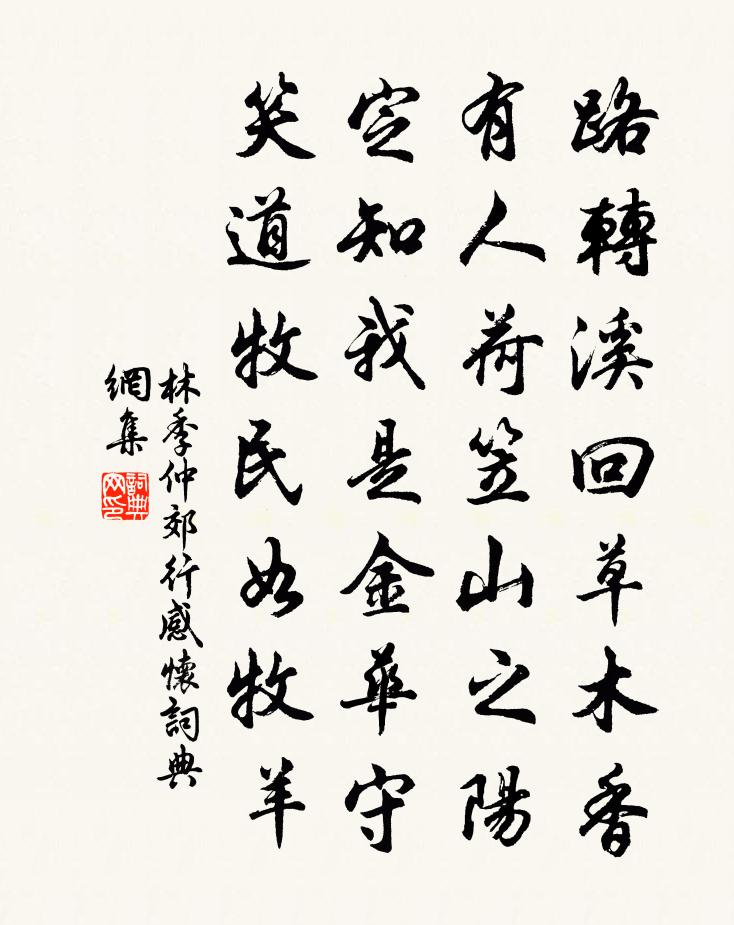 路轉溪回草木香
有人荷笠山之陽
定知我是金華守
笑道牧民如牧羊
林季仲郊行感懷詞典
網集
詞典网印